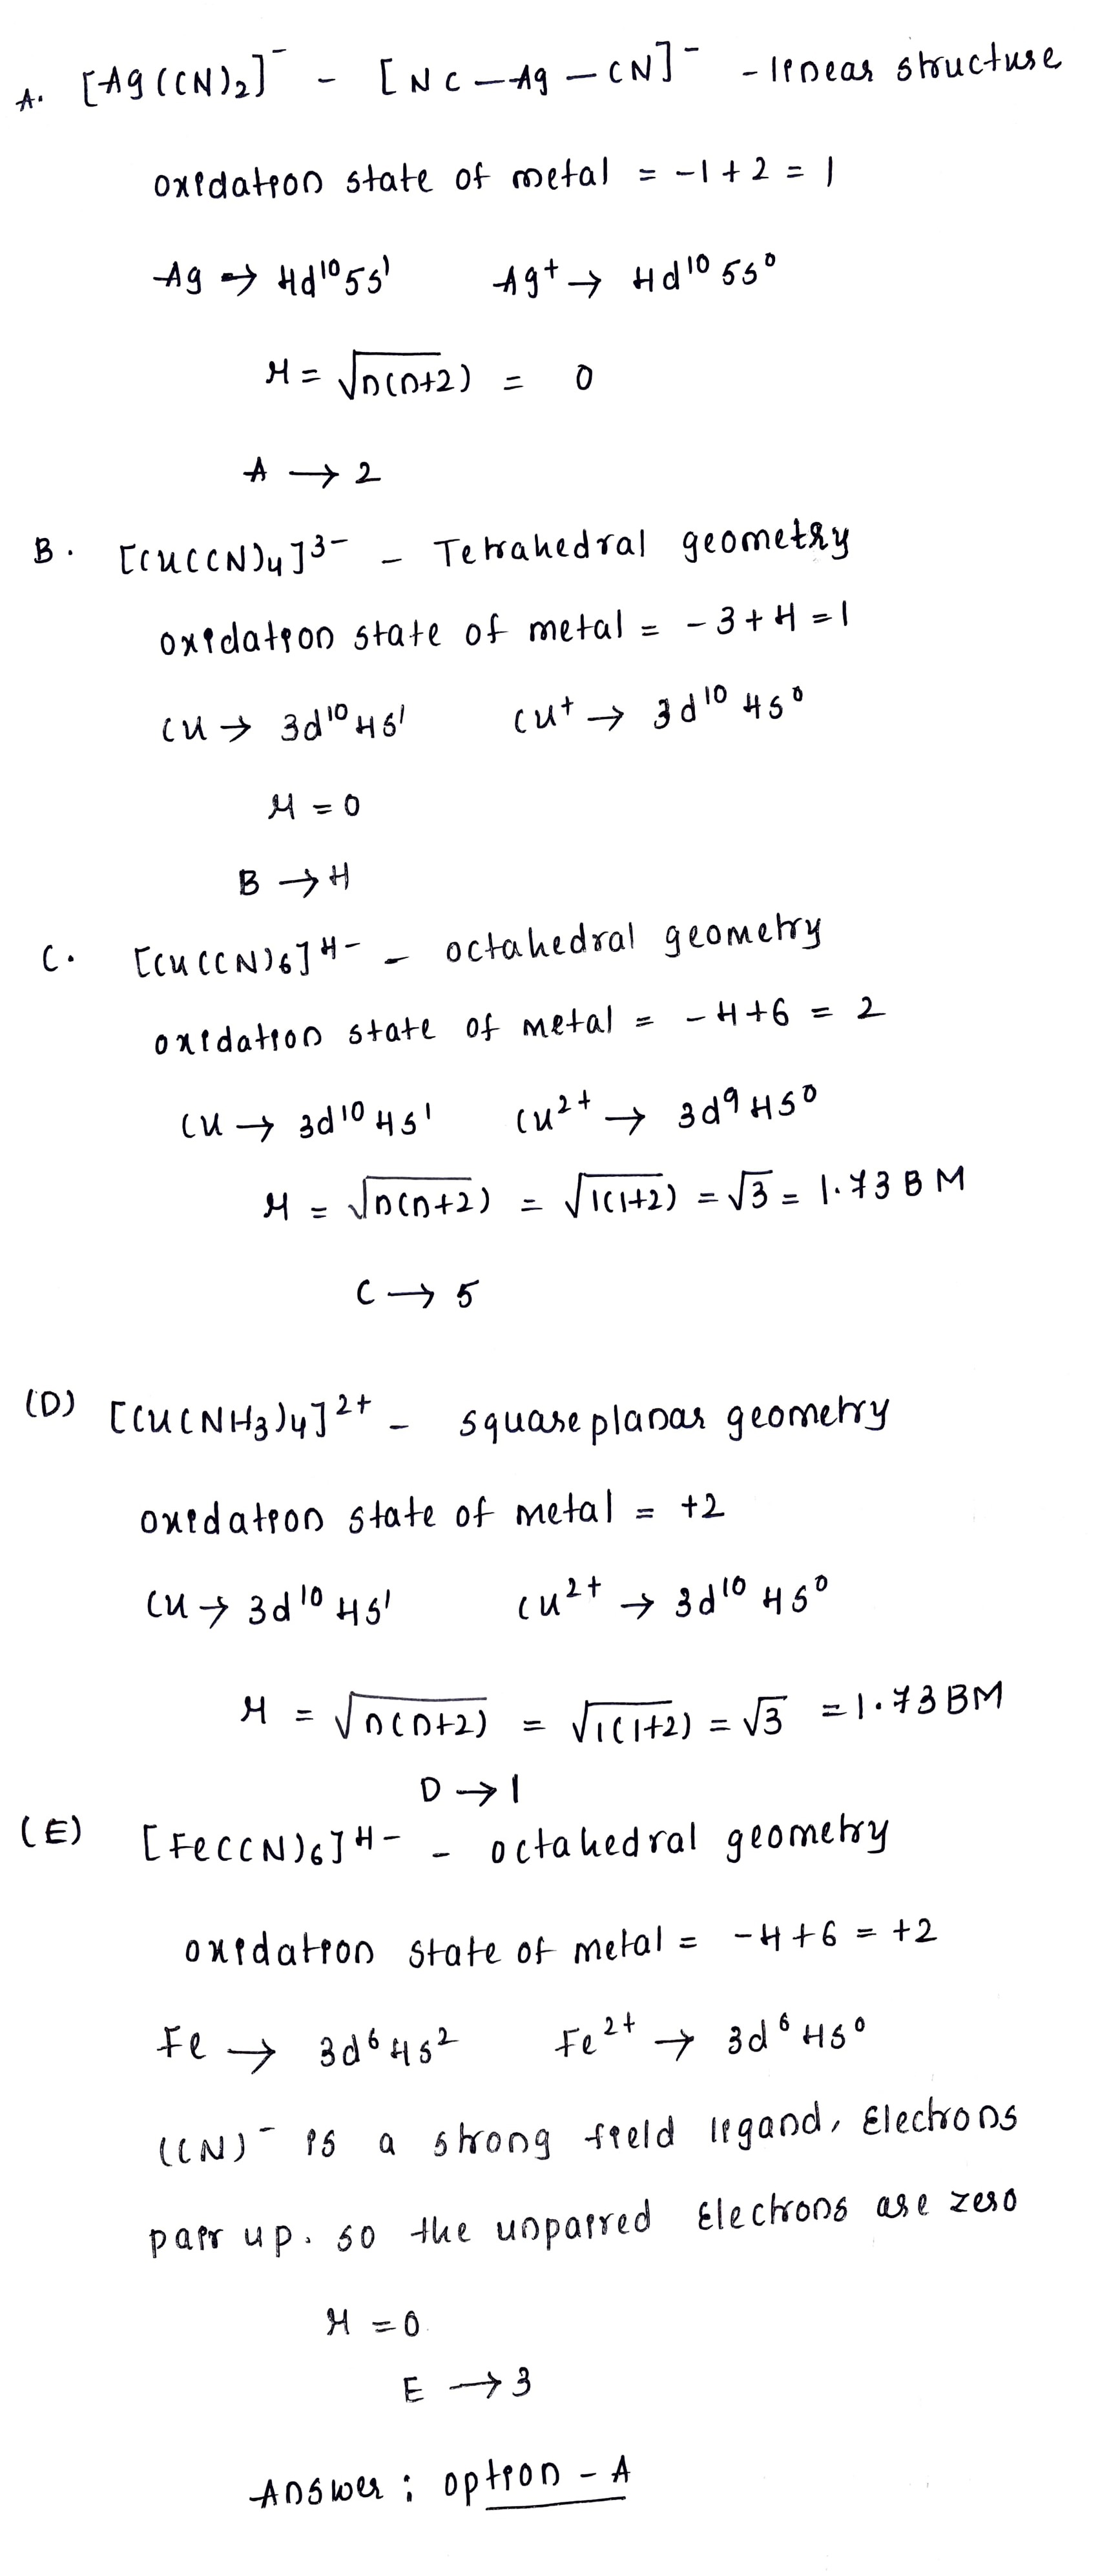 A. [Ag(CN)₂]⁻ - [NC-Ag-CN]⁻ - linear structure
oxidation state of metal = -1+2 = 1
Ag → 4d¹⁰5s¹ Ag⁺ → 4d¹⁰5s⁰
μ = √n(n+2) = 0
A → 2
B. [Cu(CN)₄]³⁻ - Tetrahedral geometry
oxidation state of metal = -3+4=1
Cu → 3d¹⁰4s¹ Cu⁺ → 3d¹⁰4s⁰
μ = 0
B → 4
C. [Cu(CN)₆]⁴⁻ - octahedral geometry
oxidation state of metal = -4+6 = 2
Cu → 3d¹⁰4s¹ Cu²⁺ → 3d⁹4s⁰
μ = √n(n+2) = √1(1+2) = √3 = 1.73 BM
C → 5
(D) [Cu(NH₃)₄]²⁺ - square planar geometry
oxidation state of metal = +2
Cu → 3d¹⁰4s¹ Cu²⁺ → 3d¹⁰4s⁰
μ = √n(n+2) = √1(1+2) = √3 = 1.73 BM
D → 1
(E) [Fe(CN)₆]⁴⁻ - octahedral geometry
oxidation state of metal = -4+6 = +2
Fe → 3d⁶4s² Fe²⁺ → 3d⁶4s⁰
(CN)⁻ is a strong field ligand, Electrons
pair up. so the unpaired Electrons are zero
μ = 0
E → 3
Answer : option - A